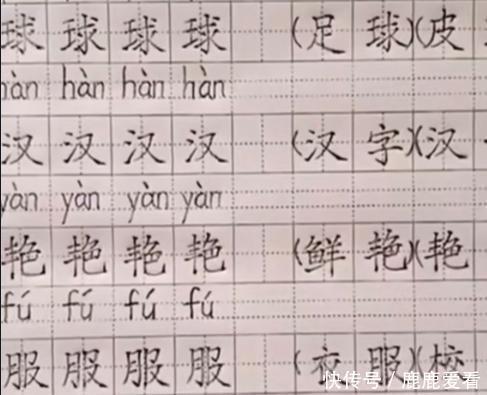 球 球 球 球 (足 球)(皮
hàn hàn hàn hàn
汉 汉 汉 汉 (汉 字)(汉
yàn yàn yàn yàn
艳 艳 艳 艳 (鲜 艳)(艳
fú fú fú fú
服 服 服 服 (衣 服)(校
快传号/鹿鹿爱看